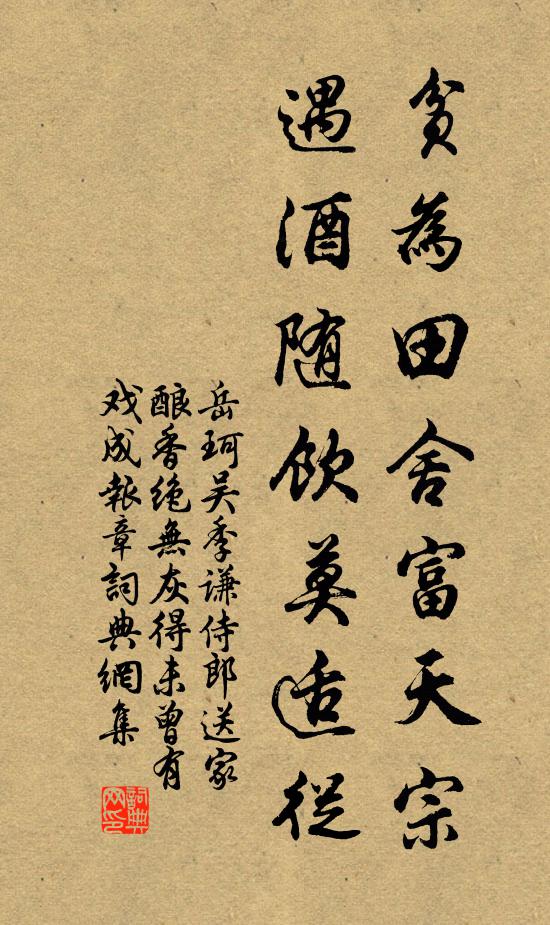 貧為田舍富天宗
遇酒随飲莫适從
岳珂吴季谦侍郎送家
酿香绝無灰得未曾有
戏成報章詞典網集
詞典
网印